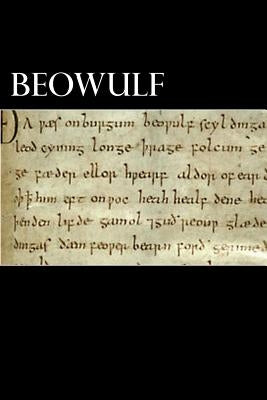 BEOWULF
Ða ƿæs on burgum beoƿulf scyldinga
leod cyning longe þrage folcum ge
ge fæder ellor hƿearf aldor of eard
oþ þ̄ him eft onƿoc heah healf dene he
þenden lifde gamol ⁊ guð reouƿ glæde
dingas ðæm feoƿer bearn forð gerimed